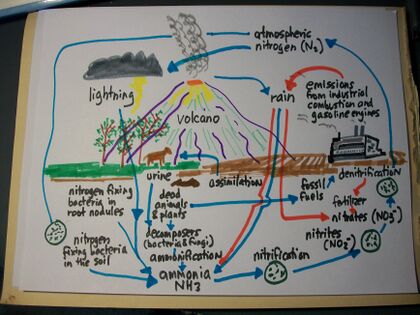 atmospheric
nitrogen (N₂)
lightning
volcano
rain
emissions
from industrial
combustion and
gasoline engines
nitrogen fixing
bacteria in
root nodules
urine
dead
animals
& plants
assimilation
fossil
fuels
denitrification
fertilizer
nitrates (NO₃⁻)
nitrites
(NO₂⁻)
nitrogen
fixing bacteria
in the soil
decomposers
(bacteria & fungi)
ammonification
ammonia
NH3
nitrification